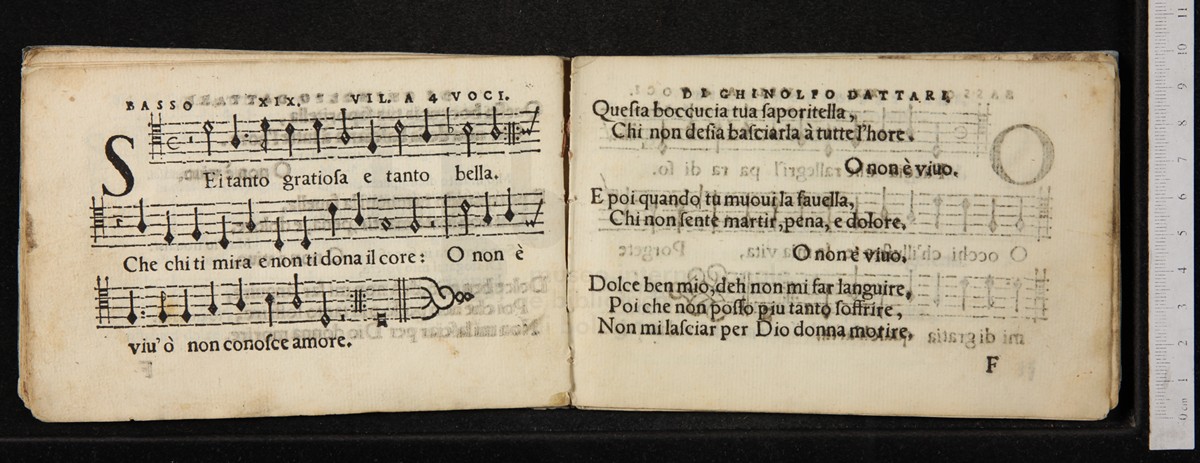 BASSO XIX. VIL. A 4 VOCI.
SEi tanto gratioſa e tanto bella.
Che chi ti mira e non ti dona il core: O non è
viu' ò non conoſce amore.
DI GHINOLFO DATTARI.
Queſta boccucia tua ſaporitella,
Chi non deſia baſciarla à tutte l'hore.
O non è viuo.
E poi quando tu muoui la fauella,
Chi non ſente martir, pena, e dolore,
O non è viuo.
Dolce ben mio, deh non mi far languire,
Poi che non poſſo piu tanto ſoffrire,
Non mi laſciar per Dio donna morire.
F